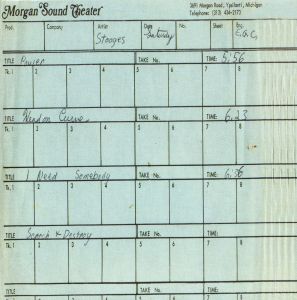 Morgan Sound Theater
3691 Morgan Road, Ypsilanti, Michigan
Telephone: (313) 434-2172
Prod. Company Artist Date No. Sheet Eng.
Stooges Saturday E.G.C.
TITLE Power TAKE No. TIME: 5:56
Tk. 1 2 3 4 5 6 7 8
TITLE TAKE No. TIME: 6:23
Tk. 1 2 3 4 5 6 7 8
TITLE I Need Somebody TAKE No. TIME: 6:36
Tk. 1 2 3 4 5 6 7 8
TITLE Search + Destroy TAKE No. TIME:
Tk. 1 2 3 4 5 6 7 8
TITLE TAKE No. TIME: